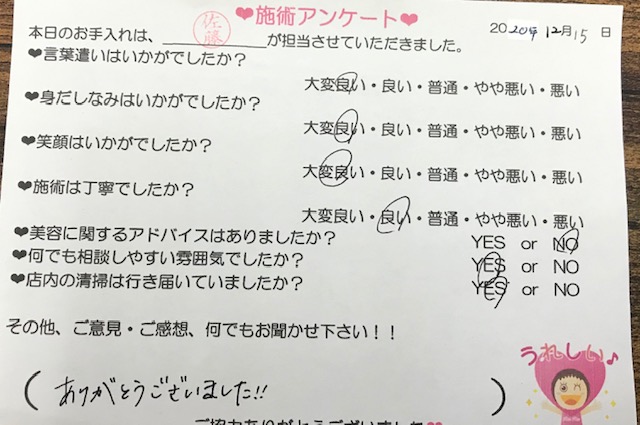 ❤施術アンケート❤
20 2024年 12月 15 日
佐藤
本日のお手入れは、__________が担当させていただきました。
❤言葉遣いはいかがでしたか?
大変良い・良い・普通・やや悪い・悪い
❤身だしなみはいかがでしたか?
大変良い・良い・普通・やや悪い・悪い
❤笑顔はいかがでしたか?
大変良い・良い・普通・やや悪い・悪い
❤施術は丁寧でしたか?
大変良い・良い・普通・やや悪い・悪い
❤美容に関するアドバイスはありましたか?
YES or NO
❤何でも相談しやすい雰囲気でしたか?
YES or NO
❤店内の清掃は行き届いていましたか?
YES or NO
その他、ご意見・ご感想、何でもお聞かせ下さい!!
うれしい♪
(ありがとうございました!!)
ご協力ありがとうございました❤